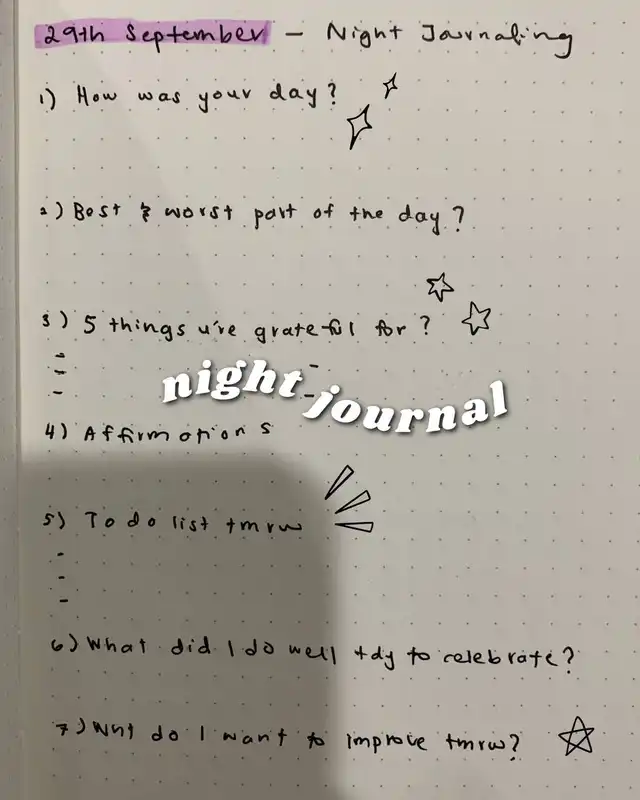 29th September - Night Journaling
1) How was your day?
2) Best & worst part of the day?
3) 5 things u're grateful for?
-
-
-
-
-
night journal
4) Affirmations
5) To do list tmrw
-
-
-
6) What did I do well tdy to celebrate?
7) Wht do I want to improve tmrw?